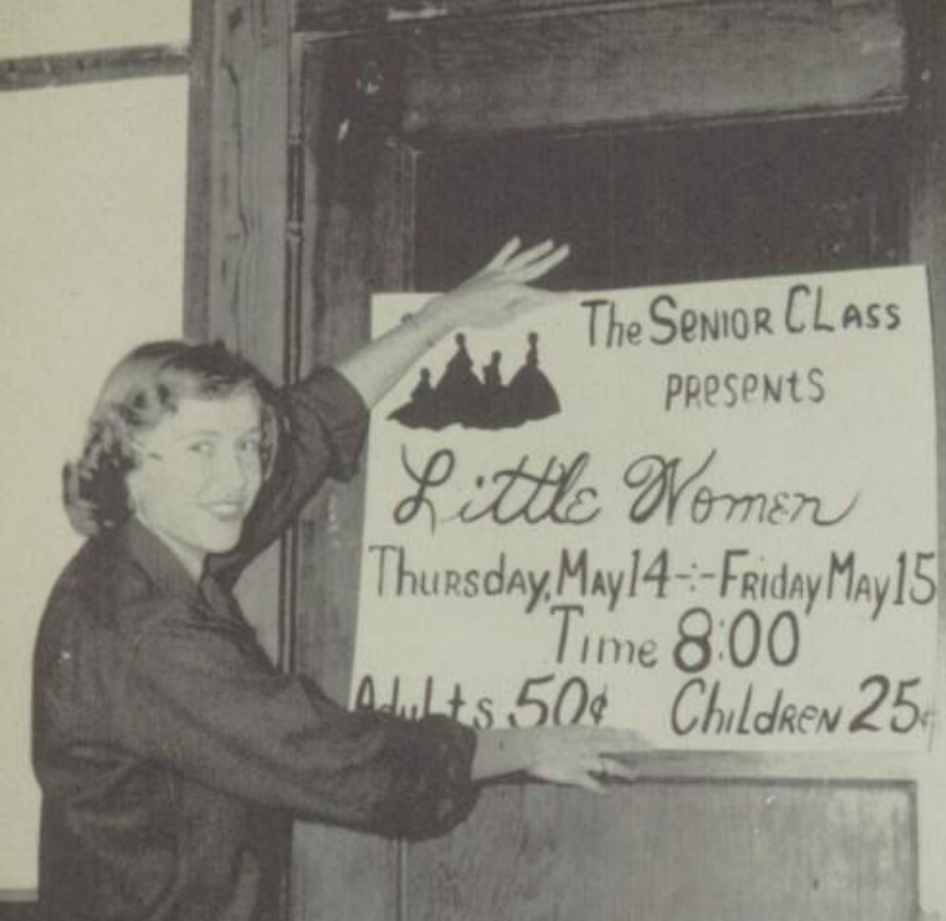 The SENIOR CLASS
PRESENTS
Little Women
THURSDAY, MAY 14 -:- FRIDAY MAY 15
Time 8:00
Adults 50¢ Children 25¢